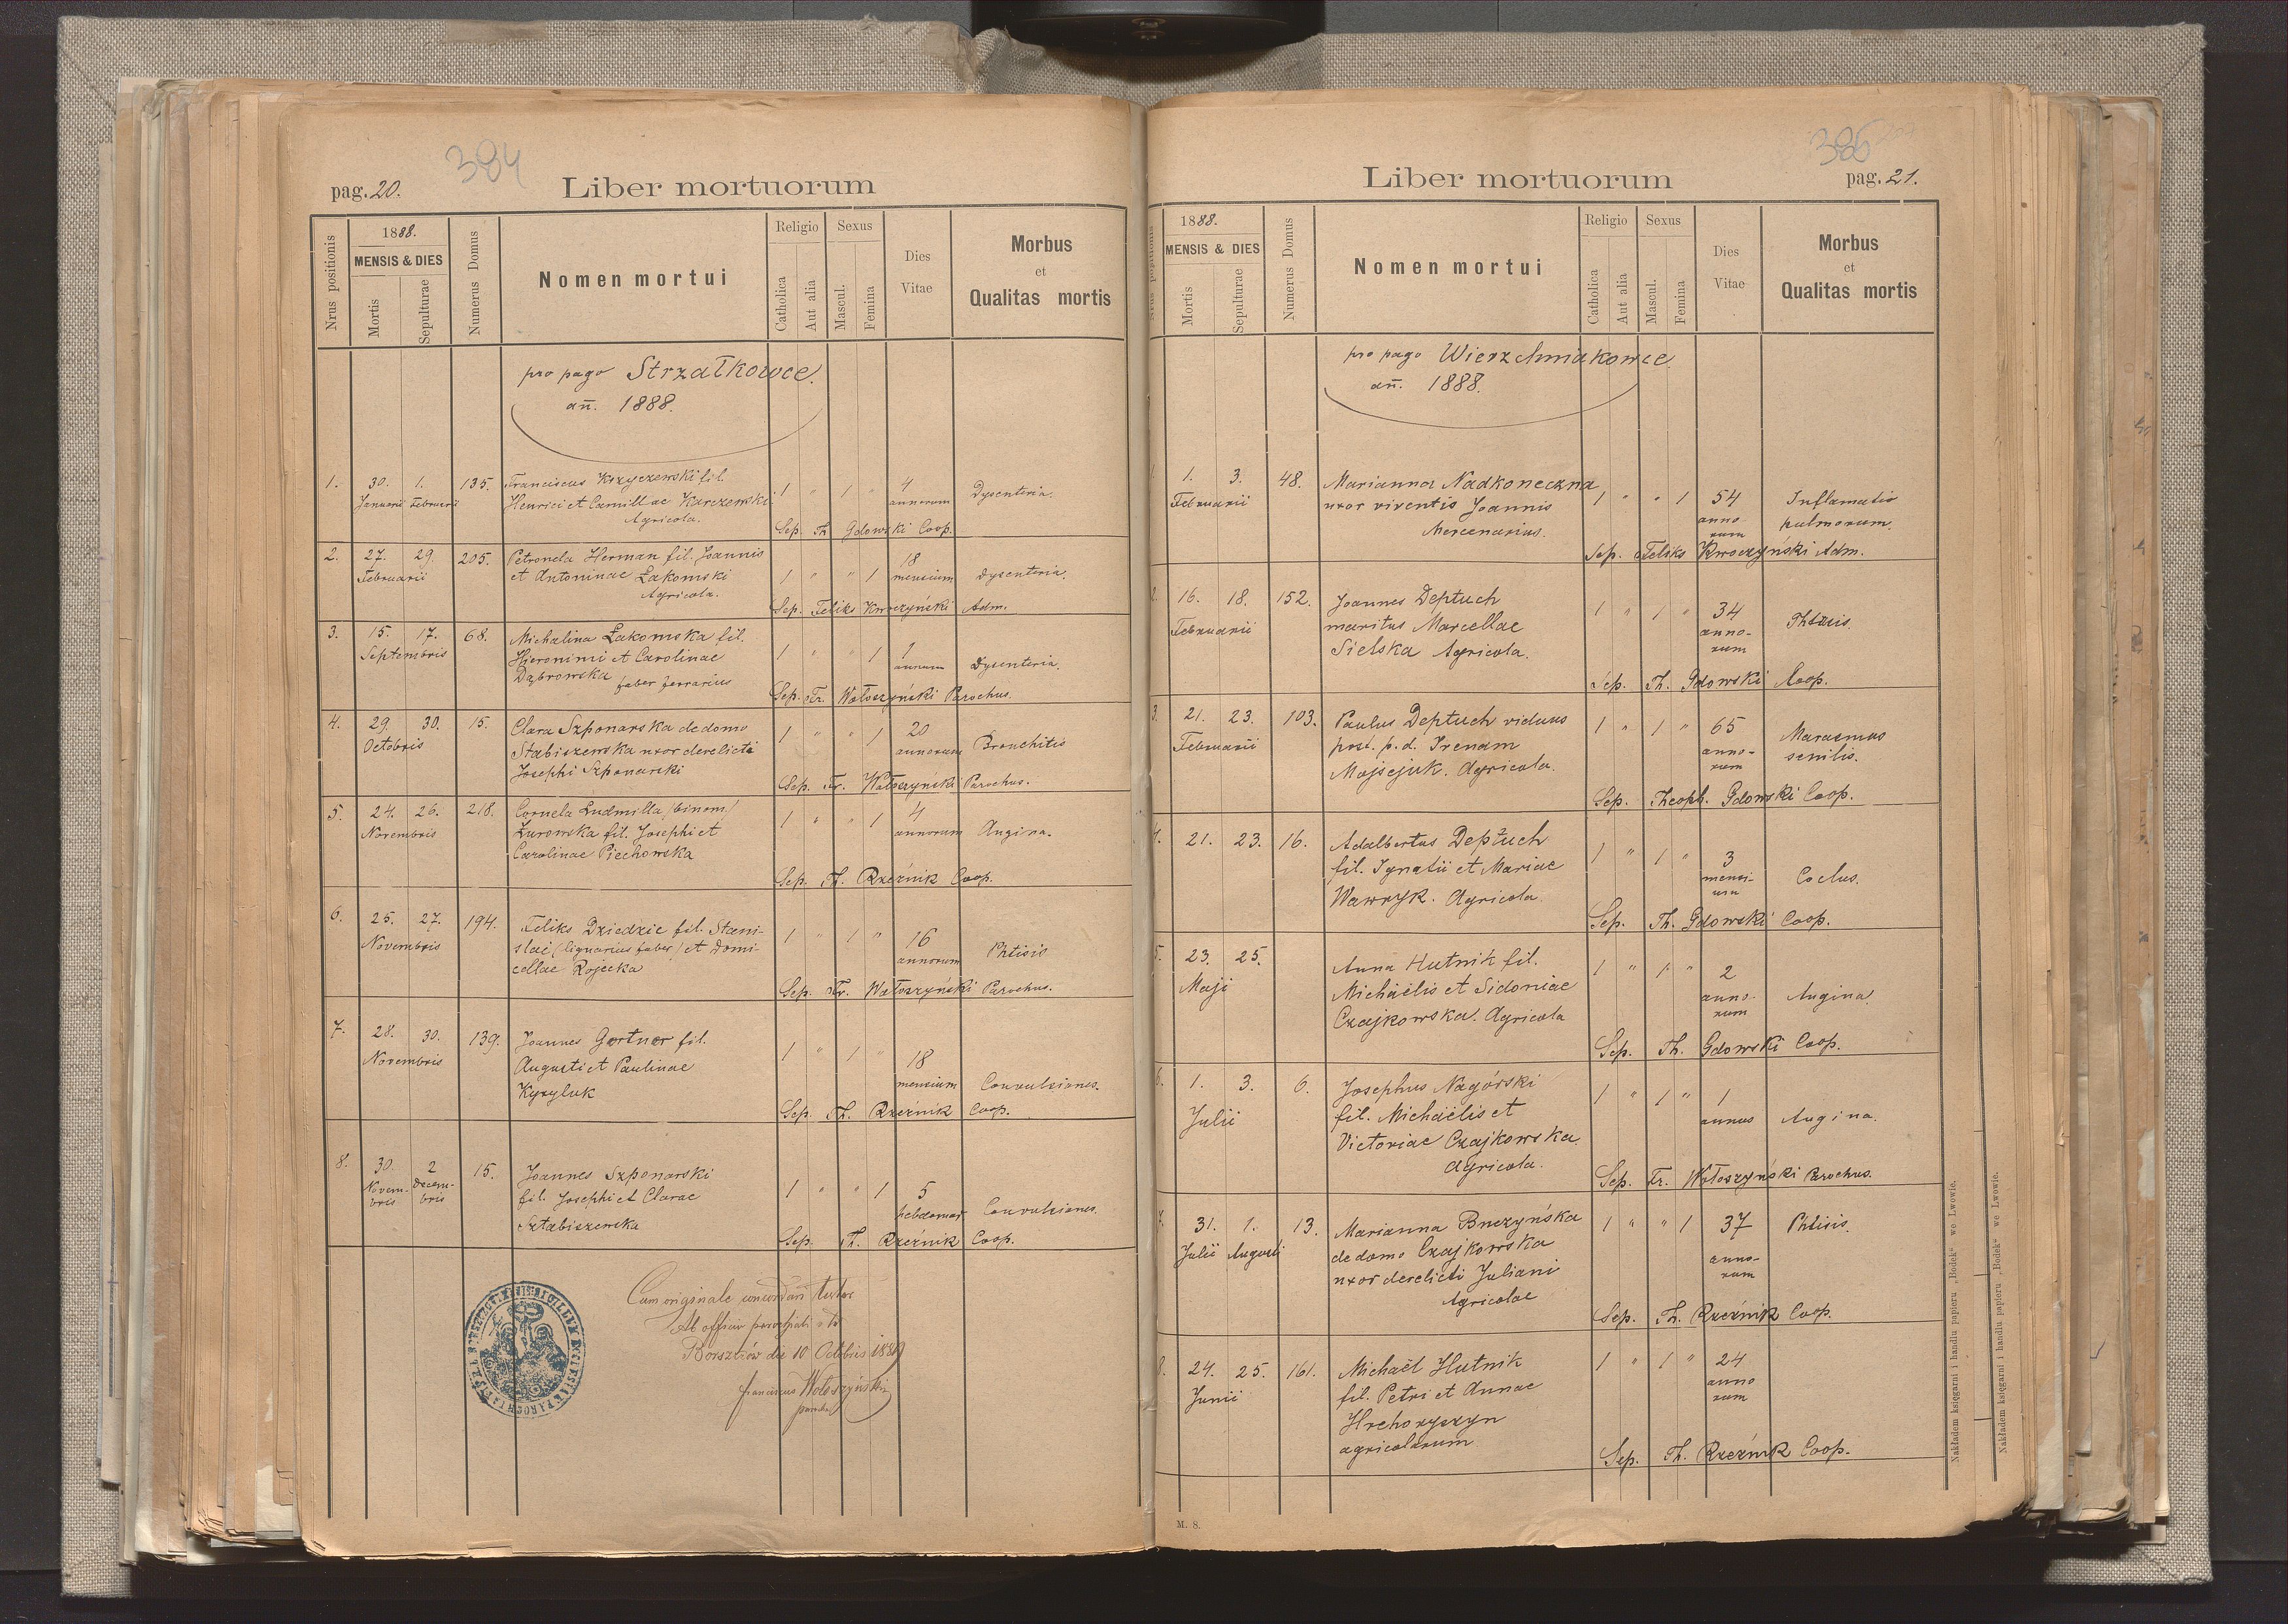 384
pag. 20.
Liber mortuorum
Nrus positionis
1888.
MENSIS & DIES
Mortis
Sepulturae
Numerus Domus
Nomen mortui
Religio
Catholica
Aut alia
Sexus
Mascul.
Femina
Dies
Vitae
Morbus
et
Qualitas mortis
pro pago Strzałkowce.
añ. 1888.
1. 30. 1. 135. Franciscus Krzyczewski fil.
Januarii Februarii Henrici et Camillae Karczewski
Agricola.
1 " 1 " 4 annorum Dysenteria.
Sep. Th. Gdowski Coop.
2. 27. 29. 205. Petronela Herman fil. Joannis
Februarii et Antoninae Łakomski
Agricola.
1 " " 1 18 mensium Dysenteria.
Sep. Feliks Kwoczyński Adm.
3. 15. 17. 68. Michalina Łakomska fil.
Septembris Hieronimi et Carolinae
Dąbrowska faber ferrarius
1 " " 1 1 annum Dysenteria.
Sep. Fr. Wołoszyński Parochus.
4. 29. 30. 15. Clara Szponarska de domo
Octobris Stabiszewska uxor derelicti
Josephi Szponarski
1 " " 1 20 annorum Bronchitis
Sep. Fr. Wołoszyński Parochus.
5. 24. 26. 218. Cornela Ludmilla /binom/
Novembris Żurowska fil. Josephi et
Carolinae Piechowska
1 " " 1 4 annorum Angina.
Sep. Th. Rzeźnik Coop.
6. 25. 27. 194. Feliks Dziedzic fil. Stani-
Novembris slai (lignarius faber) et Domi-
cellae Rojecka
1 " 1 " 16 annorum Phtisis
Sep. Fr. Wołoszyński Parochus.
7. 28. 30. 139. Joannes Gortner fil.
Novembris Augusti et Paulinae
Kyzyluk
1 " 1 " 18 mensium Convulsiones.
Sep. Th. Rzeźnik Coop.
8. 30. 2 15. Joannes Szponarski
Novem- Decem- fil. Josephi et Clarae
bris bris Sztabiszewska
1 " " 1 5 hebdomad Convulsiones.
Sep. Th. Rzeźnik Coop.
Cum originale concordari testor
Ab officio parochiali
Borszczów die 10 Octobris 1889
Franciscus Wołoszyński
parochus
385
Liber mortuorum
pag. 21.
Nrus positionis
1888.
MENSIS & DIES
Mortis
Sepulturae
Numerus Domus
Nomen mortui
Religio
Catholica
Aut alia
Sexus
Mascul.
Femina
Dies
Vitae
Morbus
et
Qualitas mortis
pro pago Wierzchniakowce
añ. 1888.
1. 1. 3. 48. Marianna Nadkoneczna
Februarii uxor viventis Joannis
Mercenarius.
1 " " 1 54 anno- rum Inflamatio pulmorum.
Sep. Feliks Kwoczyński Adm.
2. 16. 18. 152. Joannes Deptuch
Februarii maritus Marcellae
Sielska Agricola.
1 " 1 " 34 anno- rum Phtisis.
Sep. Th. Gdowski Coop.
3. 21. 23. 103. Paulus Deptuch viduus
Februarii post. p. d. Irenam
Mojsejuk. Agricola.
1 " 1 " 65 anno- rum Marasmus senilis.
Sep. Theoph. Gdowski Coop.
4. 21. 23. 16. Adalbertus Deptuch
fil. Ignatii et Mariae
Wawryk. Agricola.
1 " 1 " 3 mensi- um Coclus.
Sep. Th. Gdowski Coop.
5. 23. 25. Anna Hutnik fil.
Maji Michaëlis et Sidoniae
Czajkowska. Agricola
1 " 1 " 2 anno- rum Angina.
Sep. Th. Gdowski Coop.
6. 1. 3. 6. Josephus Nagórski
Julii fil. Michaëlis et
Victoriae Czajkowska.
Agricola.
1 " 1 " 1 annus Angina.
Sep. Fr. Wołoszyński Parochus.
7. 31. 1. 13. Marianna Buczyńska
Julii Augusti de domo Czajkowska
uxor derelicti Juliani
Agricolae
1 " " 1 37 anno- rum Phtisis.
Sep. Th. Rzeźnik Coop.
8. 24. 25. 161. Michaël Hutnik
Junii fil. Petri et Annae
Hrehoryszyn
agricolarum
1 " 1 " 24 anno rum
Sep. Th. Rzeźnik Coop.
M. 8.
Nakładem księgarni i handlu papieru „Bodek“ we Lwowie.
Nakładem księgarni i handlu papieru „Bodek“ we Lwowie.